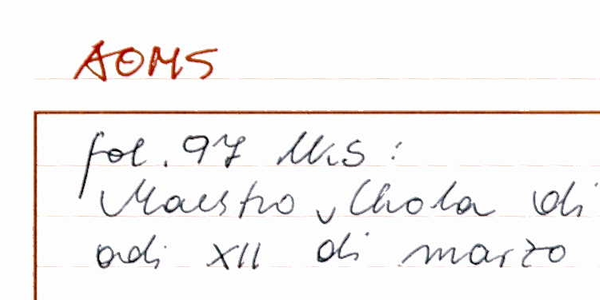 AOMS
fol. 97 MS:
Maestro Chola di
adi XII di marzo